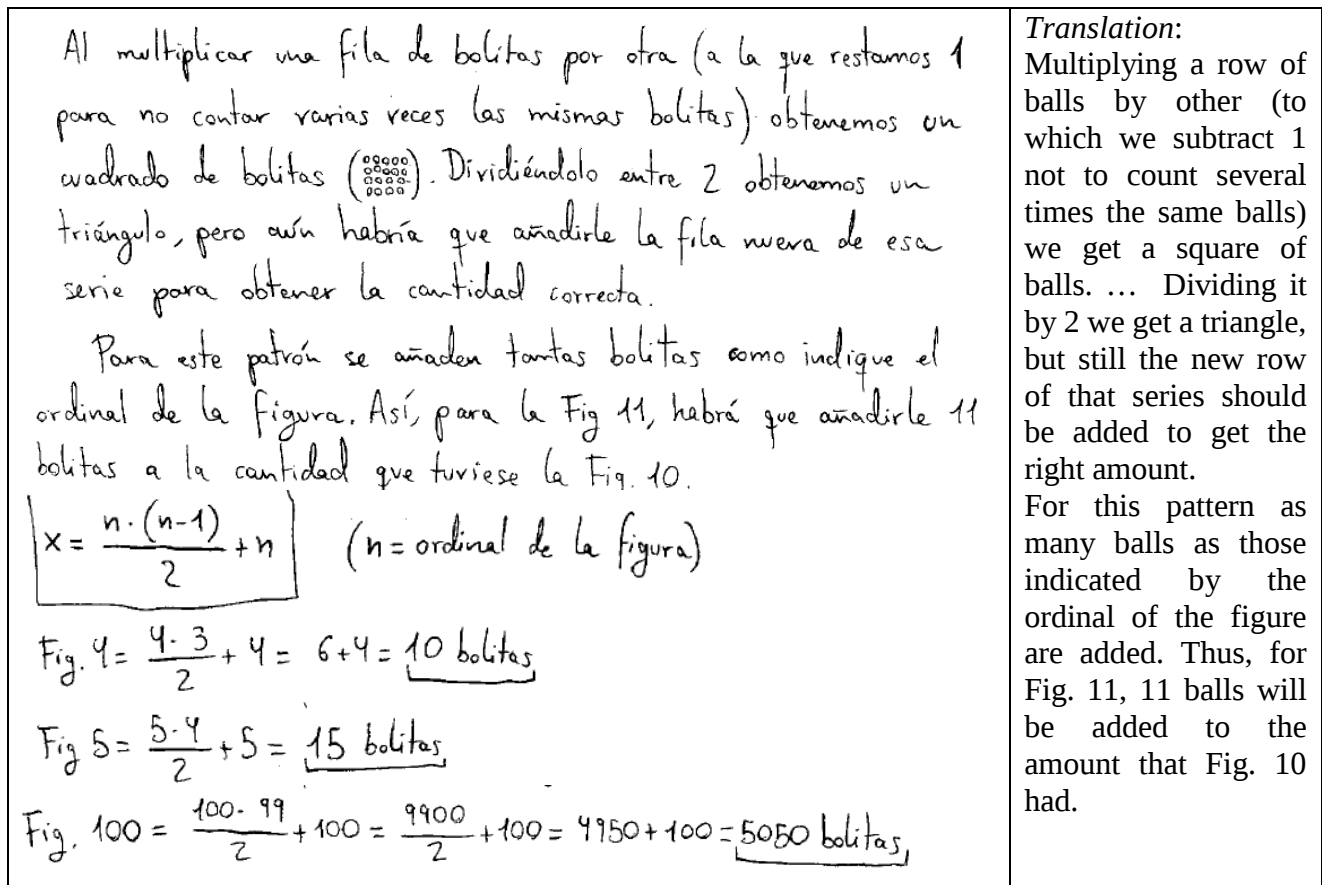 Al multiplicar una fila de bolitas por otra (a la que restamos 1
para no contar varias veces las mismas bolitas) obtenemos un
cuadrado de bolitas ( ). Dividiéndolo entre 2 obtenemos un
triángulo, pero aún habría que añadirle la fila nueva de esa
serie para obtener la cantidad correcta.
Para este patrón se añaden tantas bolitas como indique el
ordinal de la figura. Así, para la Fig 11, habrá que añadirle 11
bolitas a la cantidad que tuviese la Fig. 10.
x = \frac{n·(n-1)}{2} + n (n = ordinal de la figura)
Fig. 4 = \frac{4·3}{2} + 4 = 6+4 = 10 bolitas
Fig 5 = \frac{5·4}{2} + 5 = 15 bolitas
Fig. 100 = \frac{100·99}{2} + 100 = \frac{9900}{2} + 100 = 4950 + 100 = 5050 bolitas
Translation:
Multiplying a row of
balls by other (to
which we subtract 1
not to count several
times the same balls)
we get a square of
balls. … Dividing it
by 2 we get a triangle,
but still the new row
of that series should
be added to get the
right amount.
For this pattern as
many balls as those
indicated by the
ordinal of the figure
are added. Thus, for
Fig. 11, 11 balls will
be added to the
amount that Fig. 10
had.